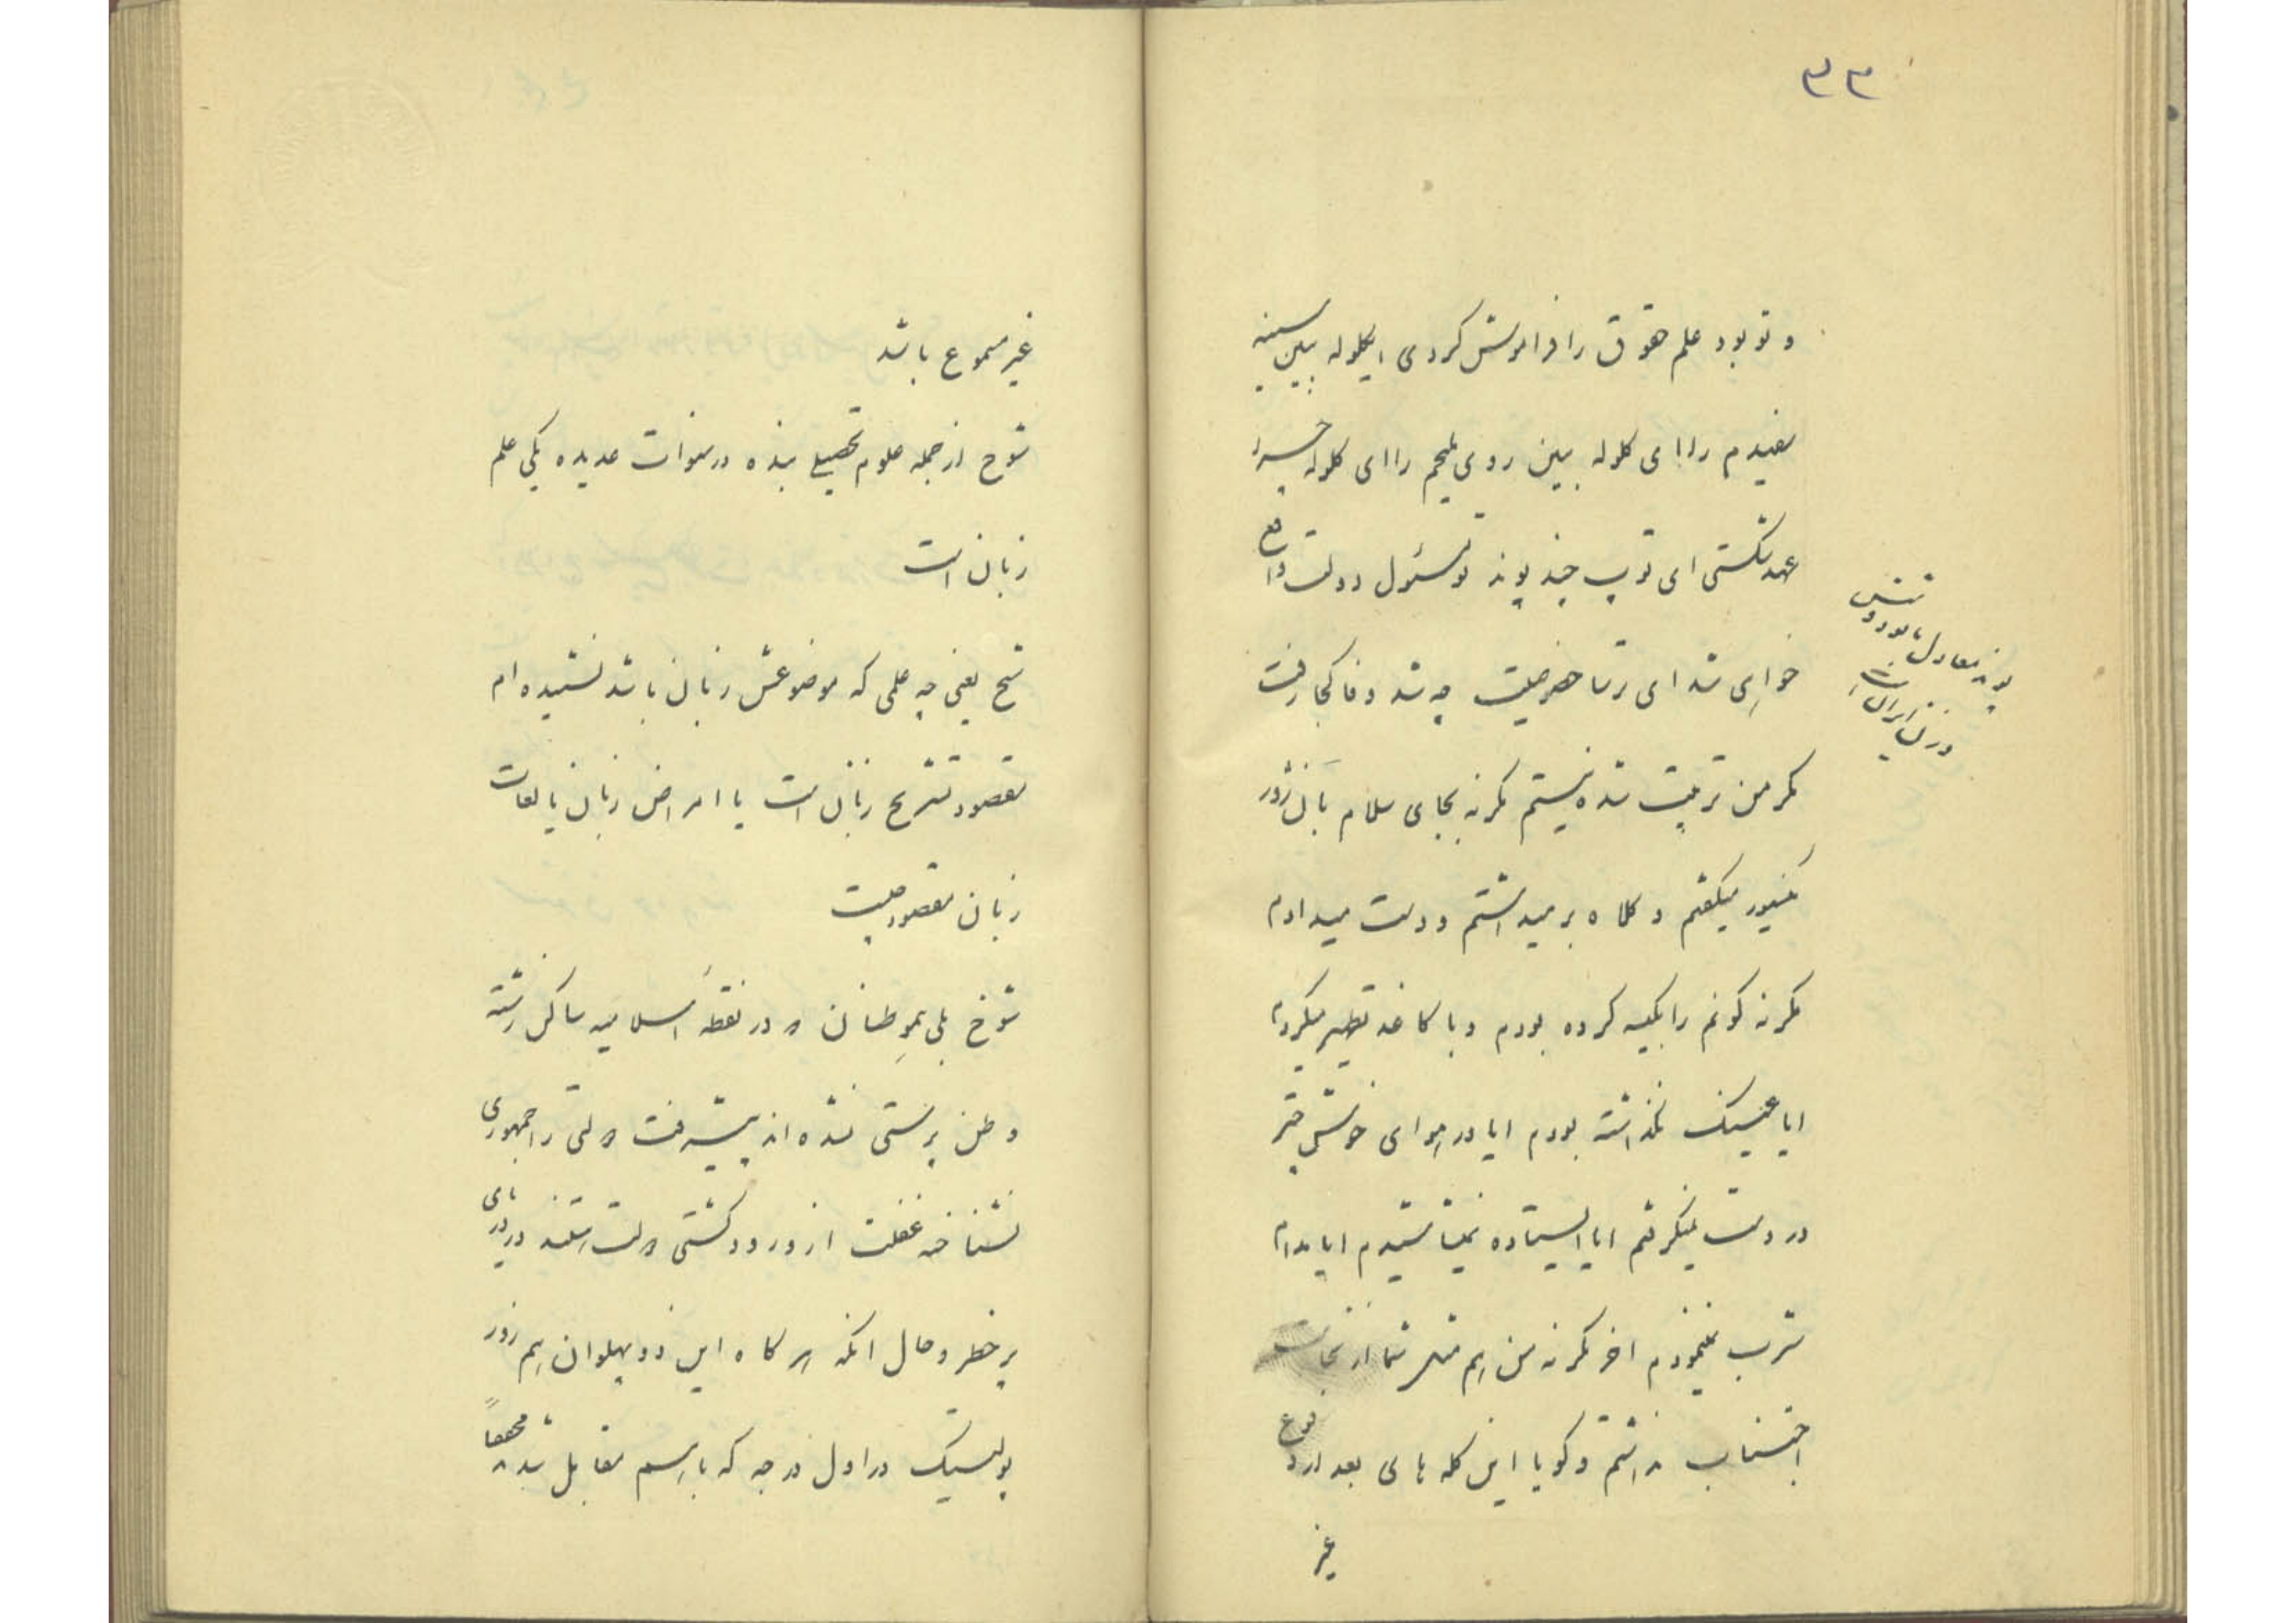 ۳۳
و تو بود علم حقوق را فراموش کردی ای گلوله ببین سینه
سفیدم را ای گلوله ببین روی ملیحم را ای گلوله چرا
عهد شکستی ای توپ چند پوند تو مسئول دولت واقع
خواهی شد ای رشا خفر صلیت چه شد وفا کجا رفت
مگر من تربیت شده نیستم مگر نه بجای سلام بان ژور
مسیور میگفتم و کلاه بر میداشتم و دست میدادم
مگر نه کونم را بکیسه کرده بودم و با کاغذ تطهیر میکردم
ایا عینک نگذاشته بودم ایا در هوای خوش چتر
در دست نمیگرفتم ایا ایستاده نمیشاشیدم ایا مدام
شرب نمینمودم اخر مگر نه من هم مثل شما از نجاسات
اجتناب نداشتم و گویا این گله های بعد از وقوع
غیر
پوند معادل
وزن ایران است
غیر مسموع باشد
شوخ از جمله علوم تحصیلی بنده در سنوات عدیده یکی علم
زبان است
شیخ یعنی چه علمی که موضوعش زبان باشد نشنیده ام
مقصود تشریح زبان است یا امراض زبان یا لغات
زبان مقصود چیست
شوخ بلی هموطنان ما در نقطهٔ اسلامیه ساکن رشته
وطن پرستی نشده اند پیشرفت ملتی را جمهوری
نشناخته غفلت از ورود کشتی ملت رستند در دریای
پر خطر و حال انکه هر گاه این دو پهلوان هم زور
پولتیک در اول درجه که با هم مقابل شدند محققاً